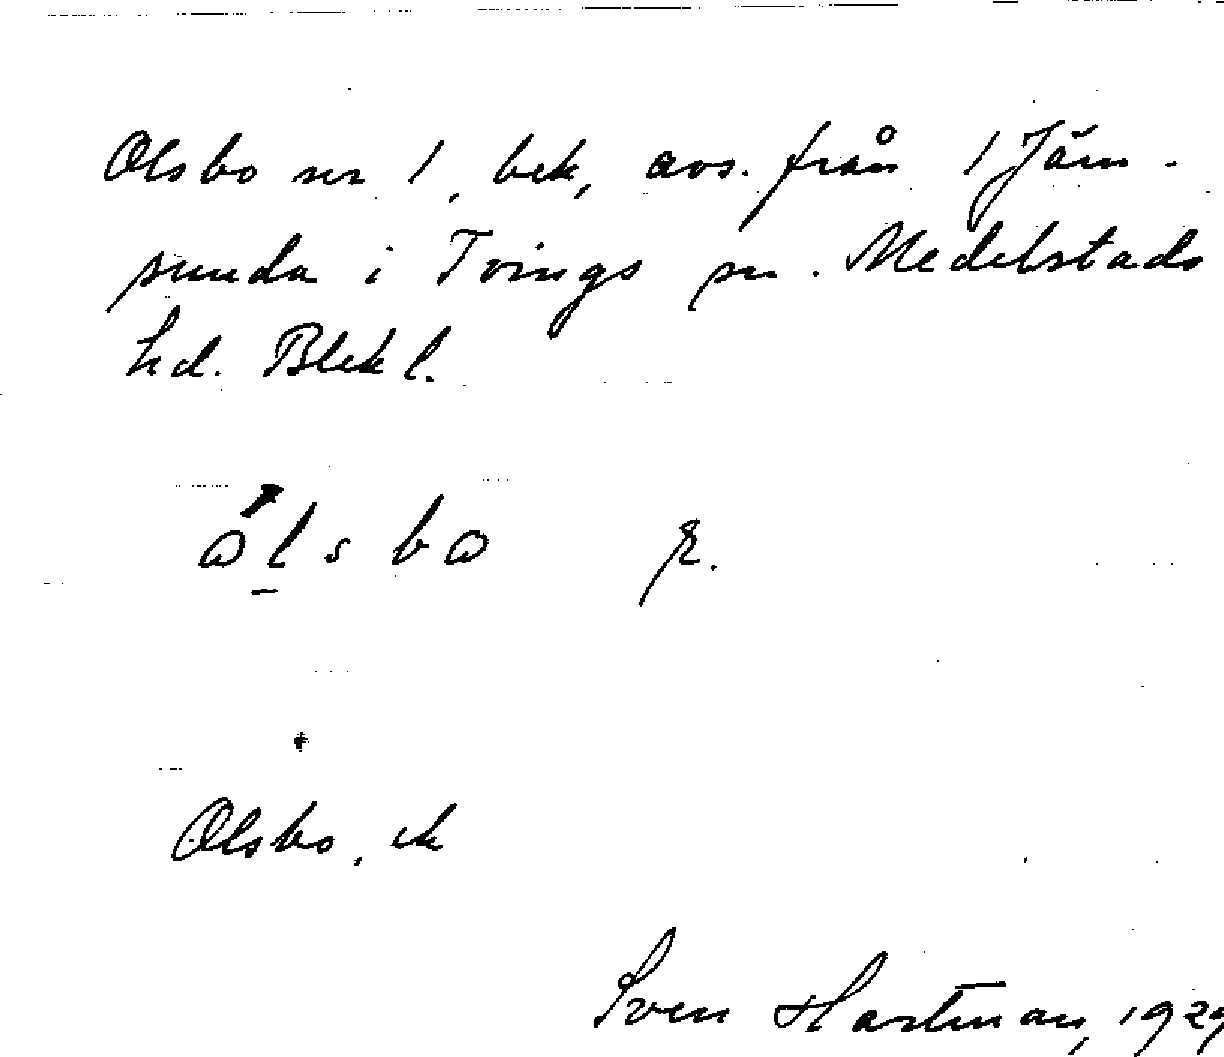 Olsbo nr 1, bek, avs. från 1 Jäm-
sunda i Tvings sn. Medelstads
hd. Blekl.
ωlsbω
Olsbo, ek
Sven Hartman, 1929